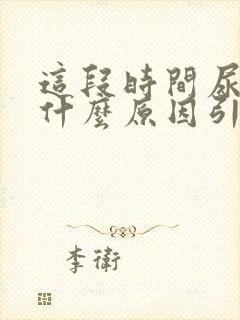 這段時間尿
什麼原因引
李衛